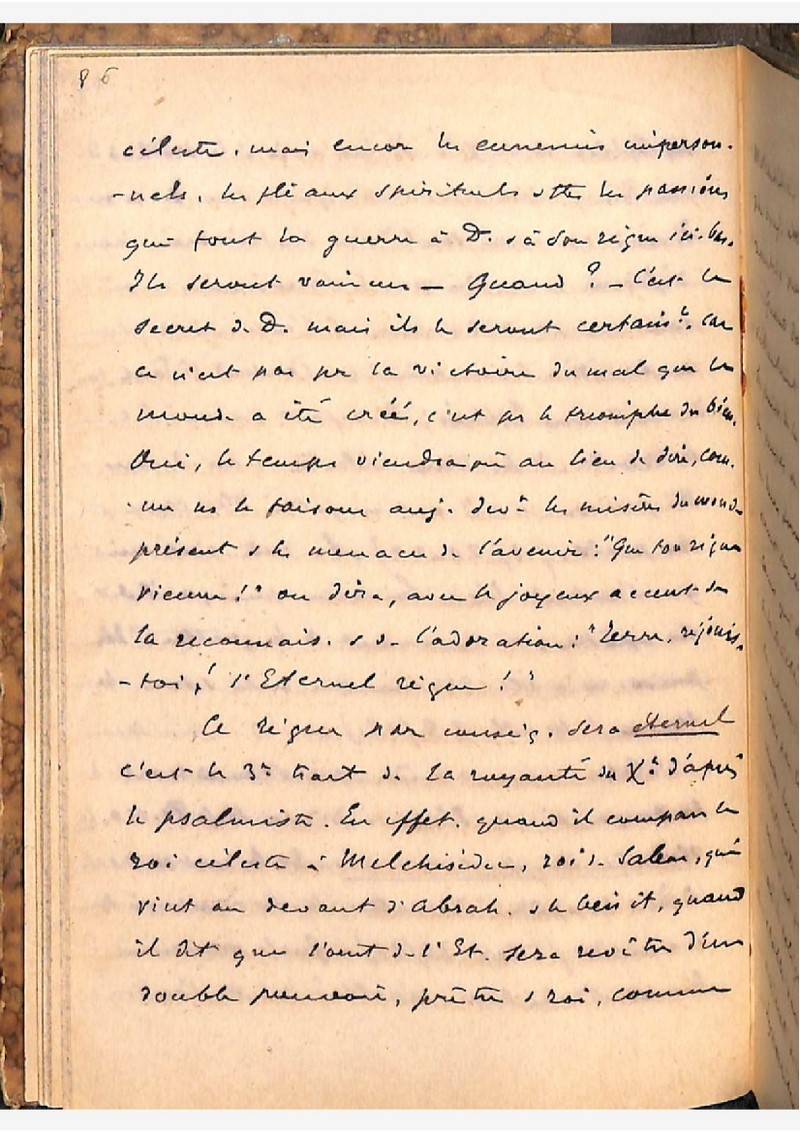 86
céleste, mais encor les ennemis imperson-
-nels, les fléaux spirituels & ttes les passions
qui font la guerre à D. & à son règne ici-bas.
Ils seront vaincus — Quand ? — C'est le
secret de D. mais ils le seront certaint. Car
ce n'est pas pr la victoire du mal que le
monde a été créé, c'est pr le triomphe du bien.
Oui, le temps viendra où au lieu de dire, com-
-me ns le faisons auj. devt les misères du monde
présent & les menaces de l'avenir : "Que ton règne
vienne !" on dira, avec le joyeux accent de
la reconnais. & de l'adoration : "Terre, réjouis-
-toi, ! l'Eternel règne ! "
Ce règne par conséq. sera éternel
c'est le 3e trait de la royauté du Xt d'après
le psalmiste. En effet, quand il compare le
roi céleste à Melchisédec, roi de Salem, qui
vint au devant d'Abrah. & le bénit, quand
il dit que l'oint de l'Et. sera revêtu d'un
double pouvoir, prêtre & roi, comme